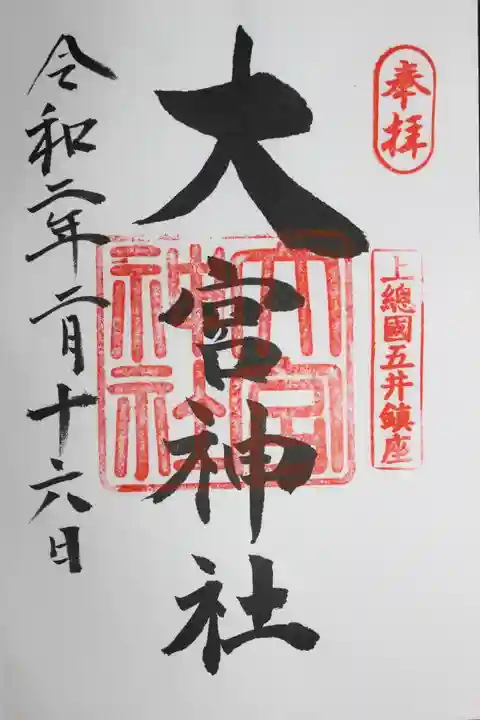 奉拝
上總國五井鎮座
大宮神社
大宮神社
令和二年二月十六日